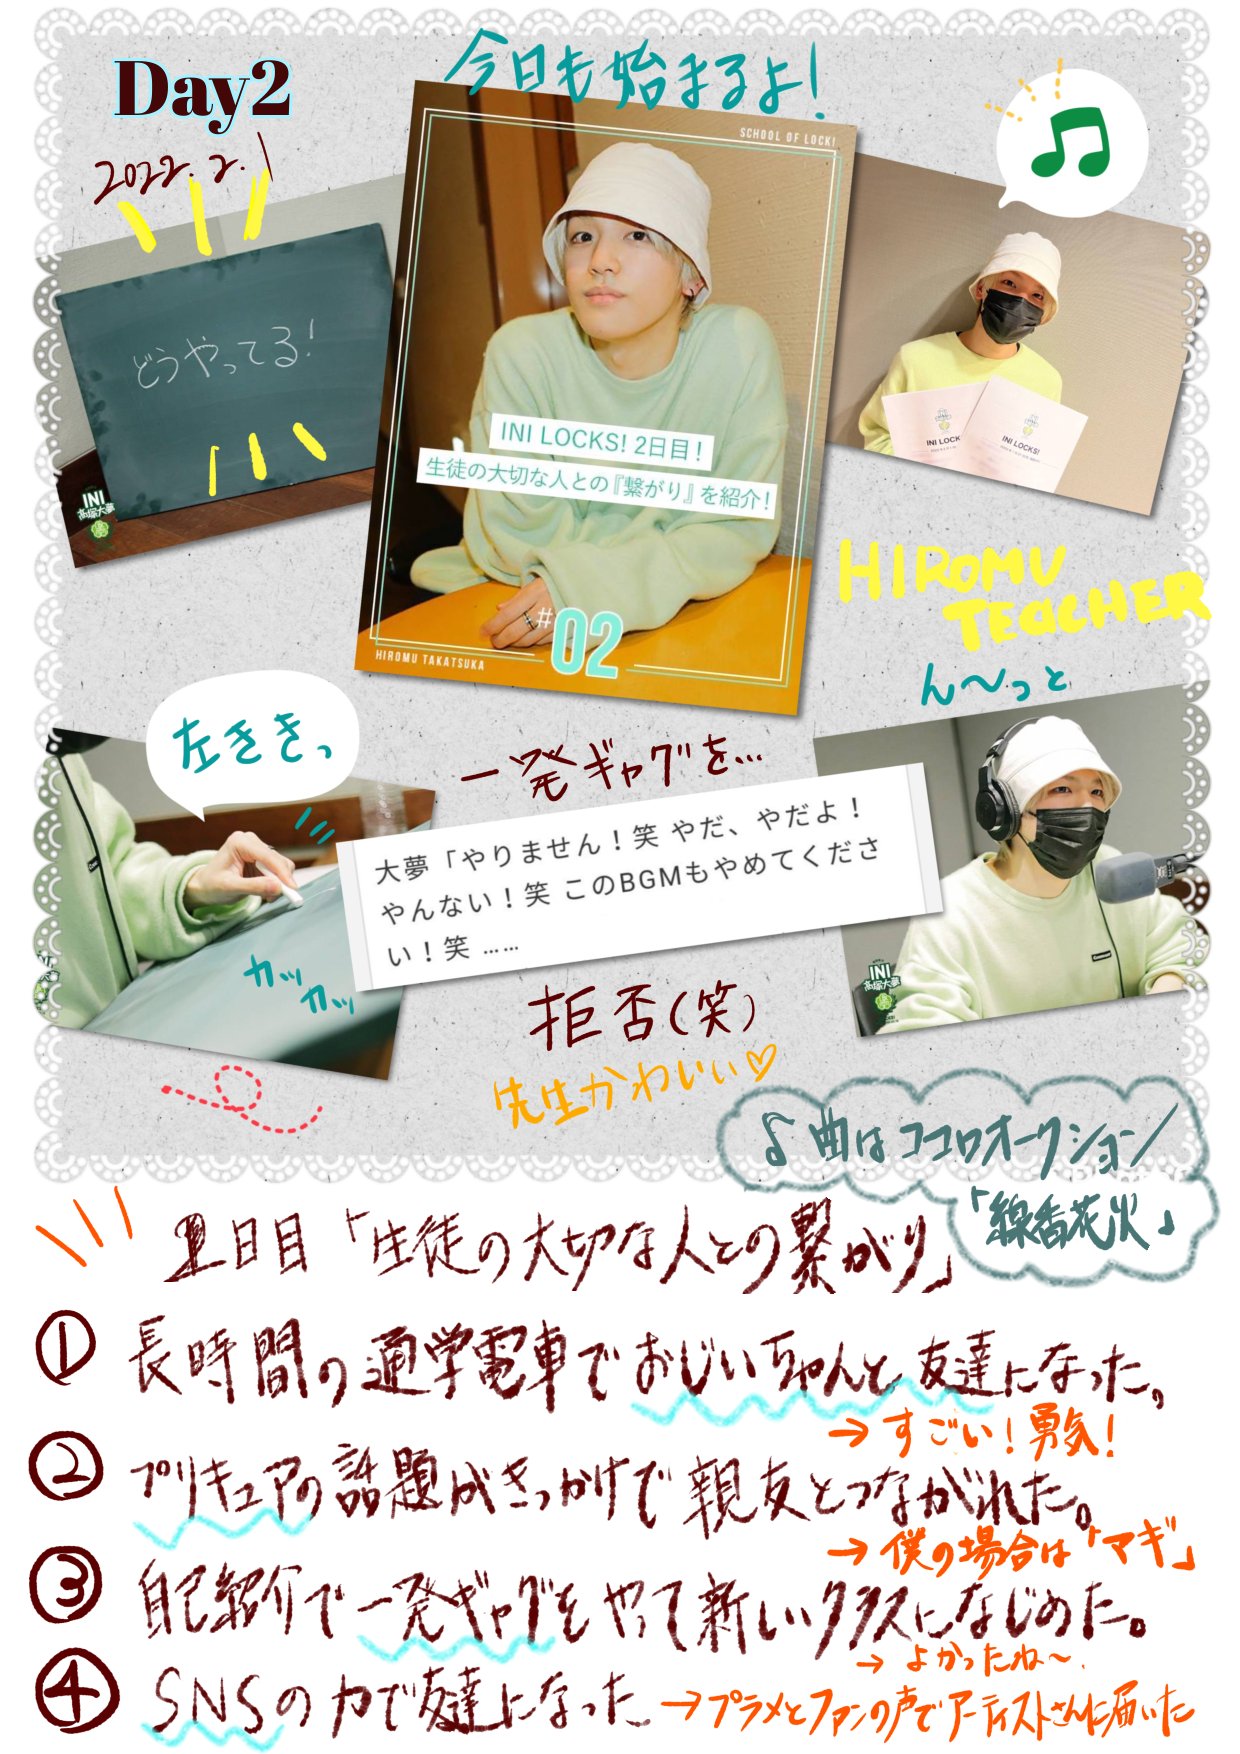 Day2
今日も始まるよ!
2022.2.1
SCHOOL OF LOCK!
どうやってる!
INI LOCKS! 2日目!
生徒の大切な人との『繋がり』を紹介!
INI LOCK
INI LOCKS!
INI
髙塚大夢
#02
HIROMU TAKATSUKA
HIROMU
TEACHER
ん〜っと
左ききっ
一発ギャグを…
大夢「やりません!笑 やだ、やだよ!
やんない!笑 このBGMもやめてくださ
い!笑 ……
カッ
カッ
INI
髙塚大夢
拒否(笑)
先生かわいい♡
♪曲はココロオークション
「線香花火」
2日目「生徒の大切な人との繋がり」
① 長時間の通学電車でおじいちゃんと友達になった。
→すごい!勇気!
② プリキュアの話題がきっかけで親友とつながれた。
→僕の場合は「マギ」
③ 自己紹介で一発ギャグをやって新しいクラスになじめた。
→よかったね〜.
④ SNSの力で友達になった→プラメとファンの声でアーティストさんに届いた